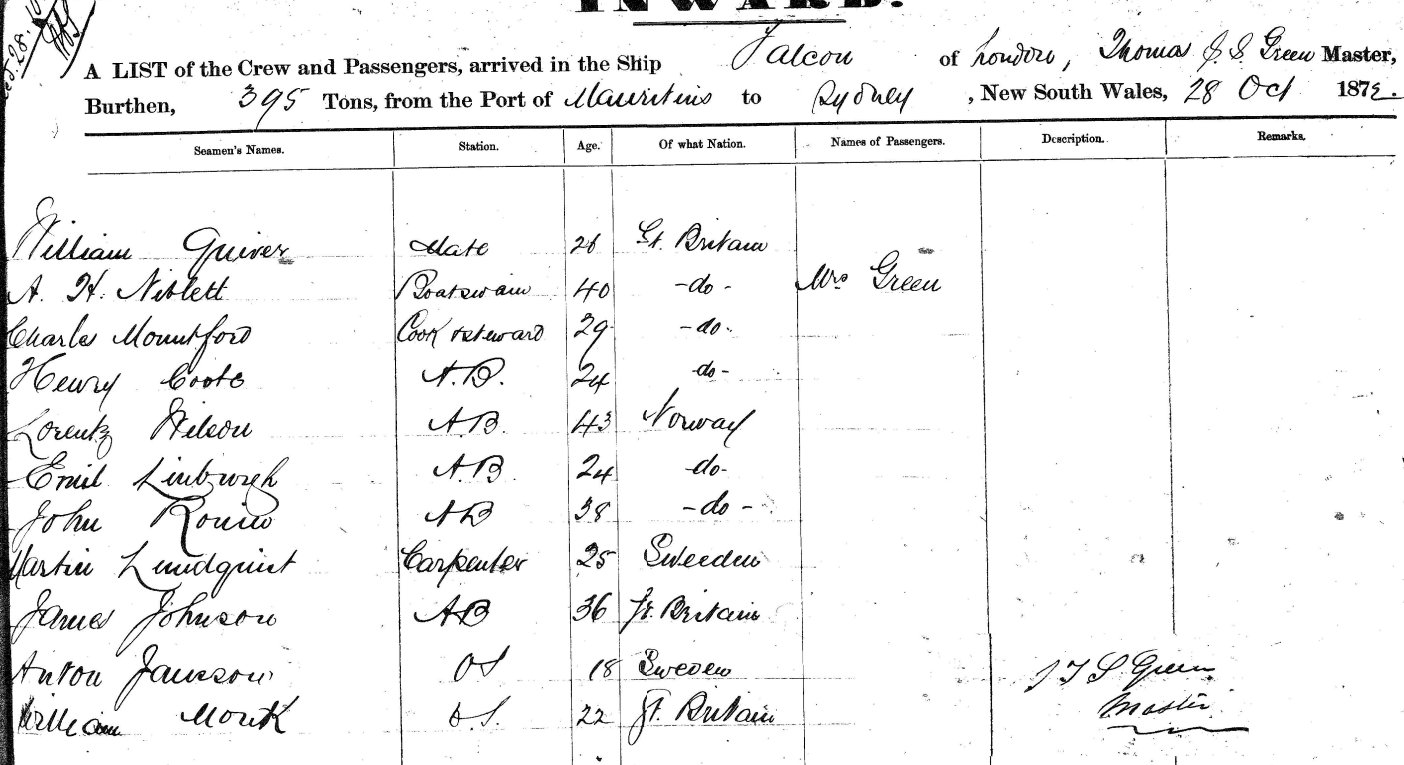 INWARD.
A LIST of the Crew and Passengers, arrived in the Ship Falcon of London, Thomas J. S. Green Master,
Burthen, 395 Tons, from the Port of Mauritius to Sydney, New South Wales, 28 Oct 1872.
Seamen's Names. Station. Age. Of what Nation. Names of Passengers. Description. Remarks.
William Quiver Mate 26 Gt. Britain
A. H. Niblett Boatswain 40 -do- Mrs Green
Charles Mountford Cook & steward 29 -do-
Henry Coote A.B. 24 -do-
Lorentz Wilson A.B. 43 Norway
Emil Linburgh A.B. 24 -do-
John AB 38 -do-
Martin Lundquist Carpenter 25 Sweeden
James Johnson AB 36 Gt. Britain
Anton Jansson OS 18 Sweden
William Monk O.S. 22 Gt. Britain
Green
Master